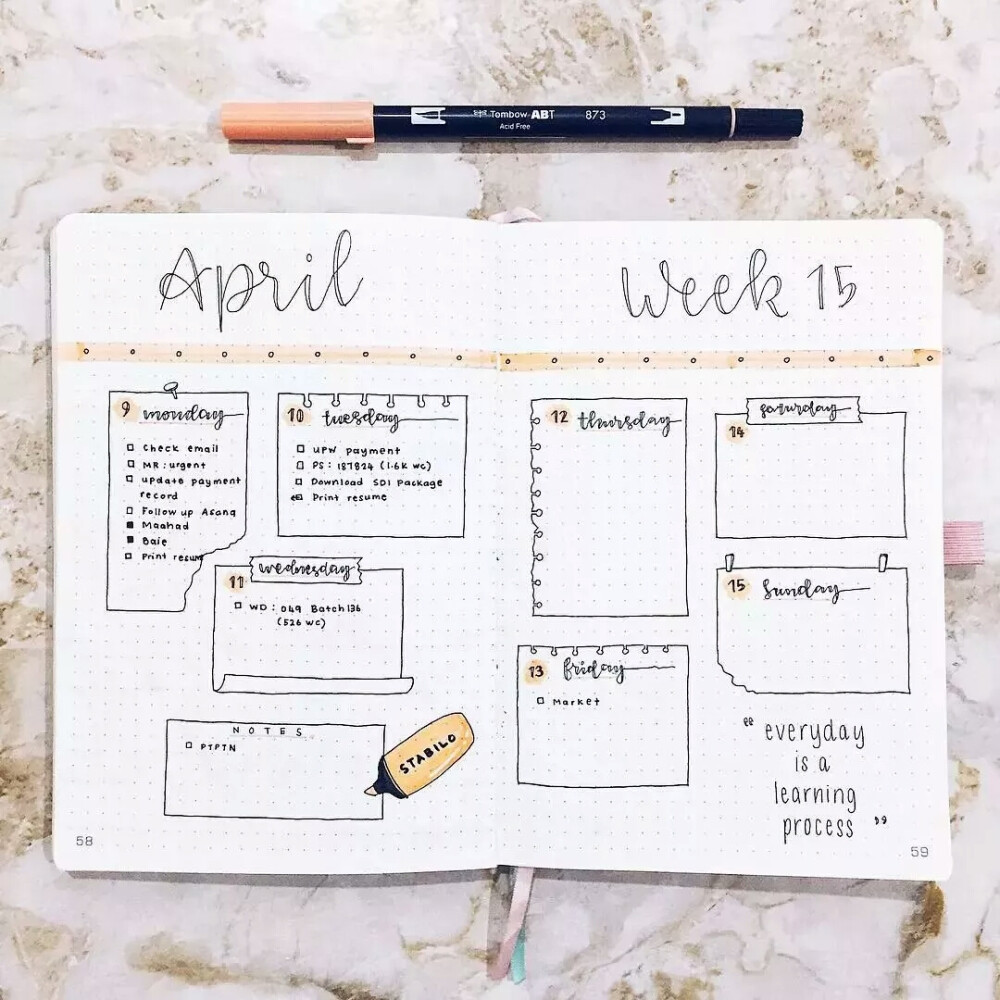 Tombow ABT 873
Acid Free
April
Week 15
9 monday
Check email
MR : urgent
update payment
record
Follow up Asana
Maahad
Baie
Print resume
10 tuesday
UPW payment
PS : 187824 (1.6K WC)
Download SDI Package
Print resume
11 wednesday
WD : 049 Batch 136
(526 WC)
NOTES
PTPTN
STABILO
58
12 thursday
13 friday
Market
saturday
14
15 sunday
" everyday
is a
learning
process "
59